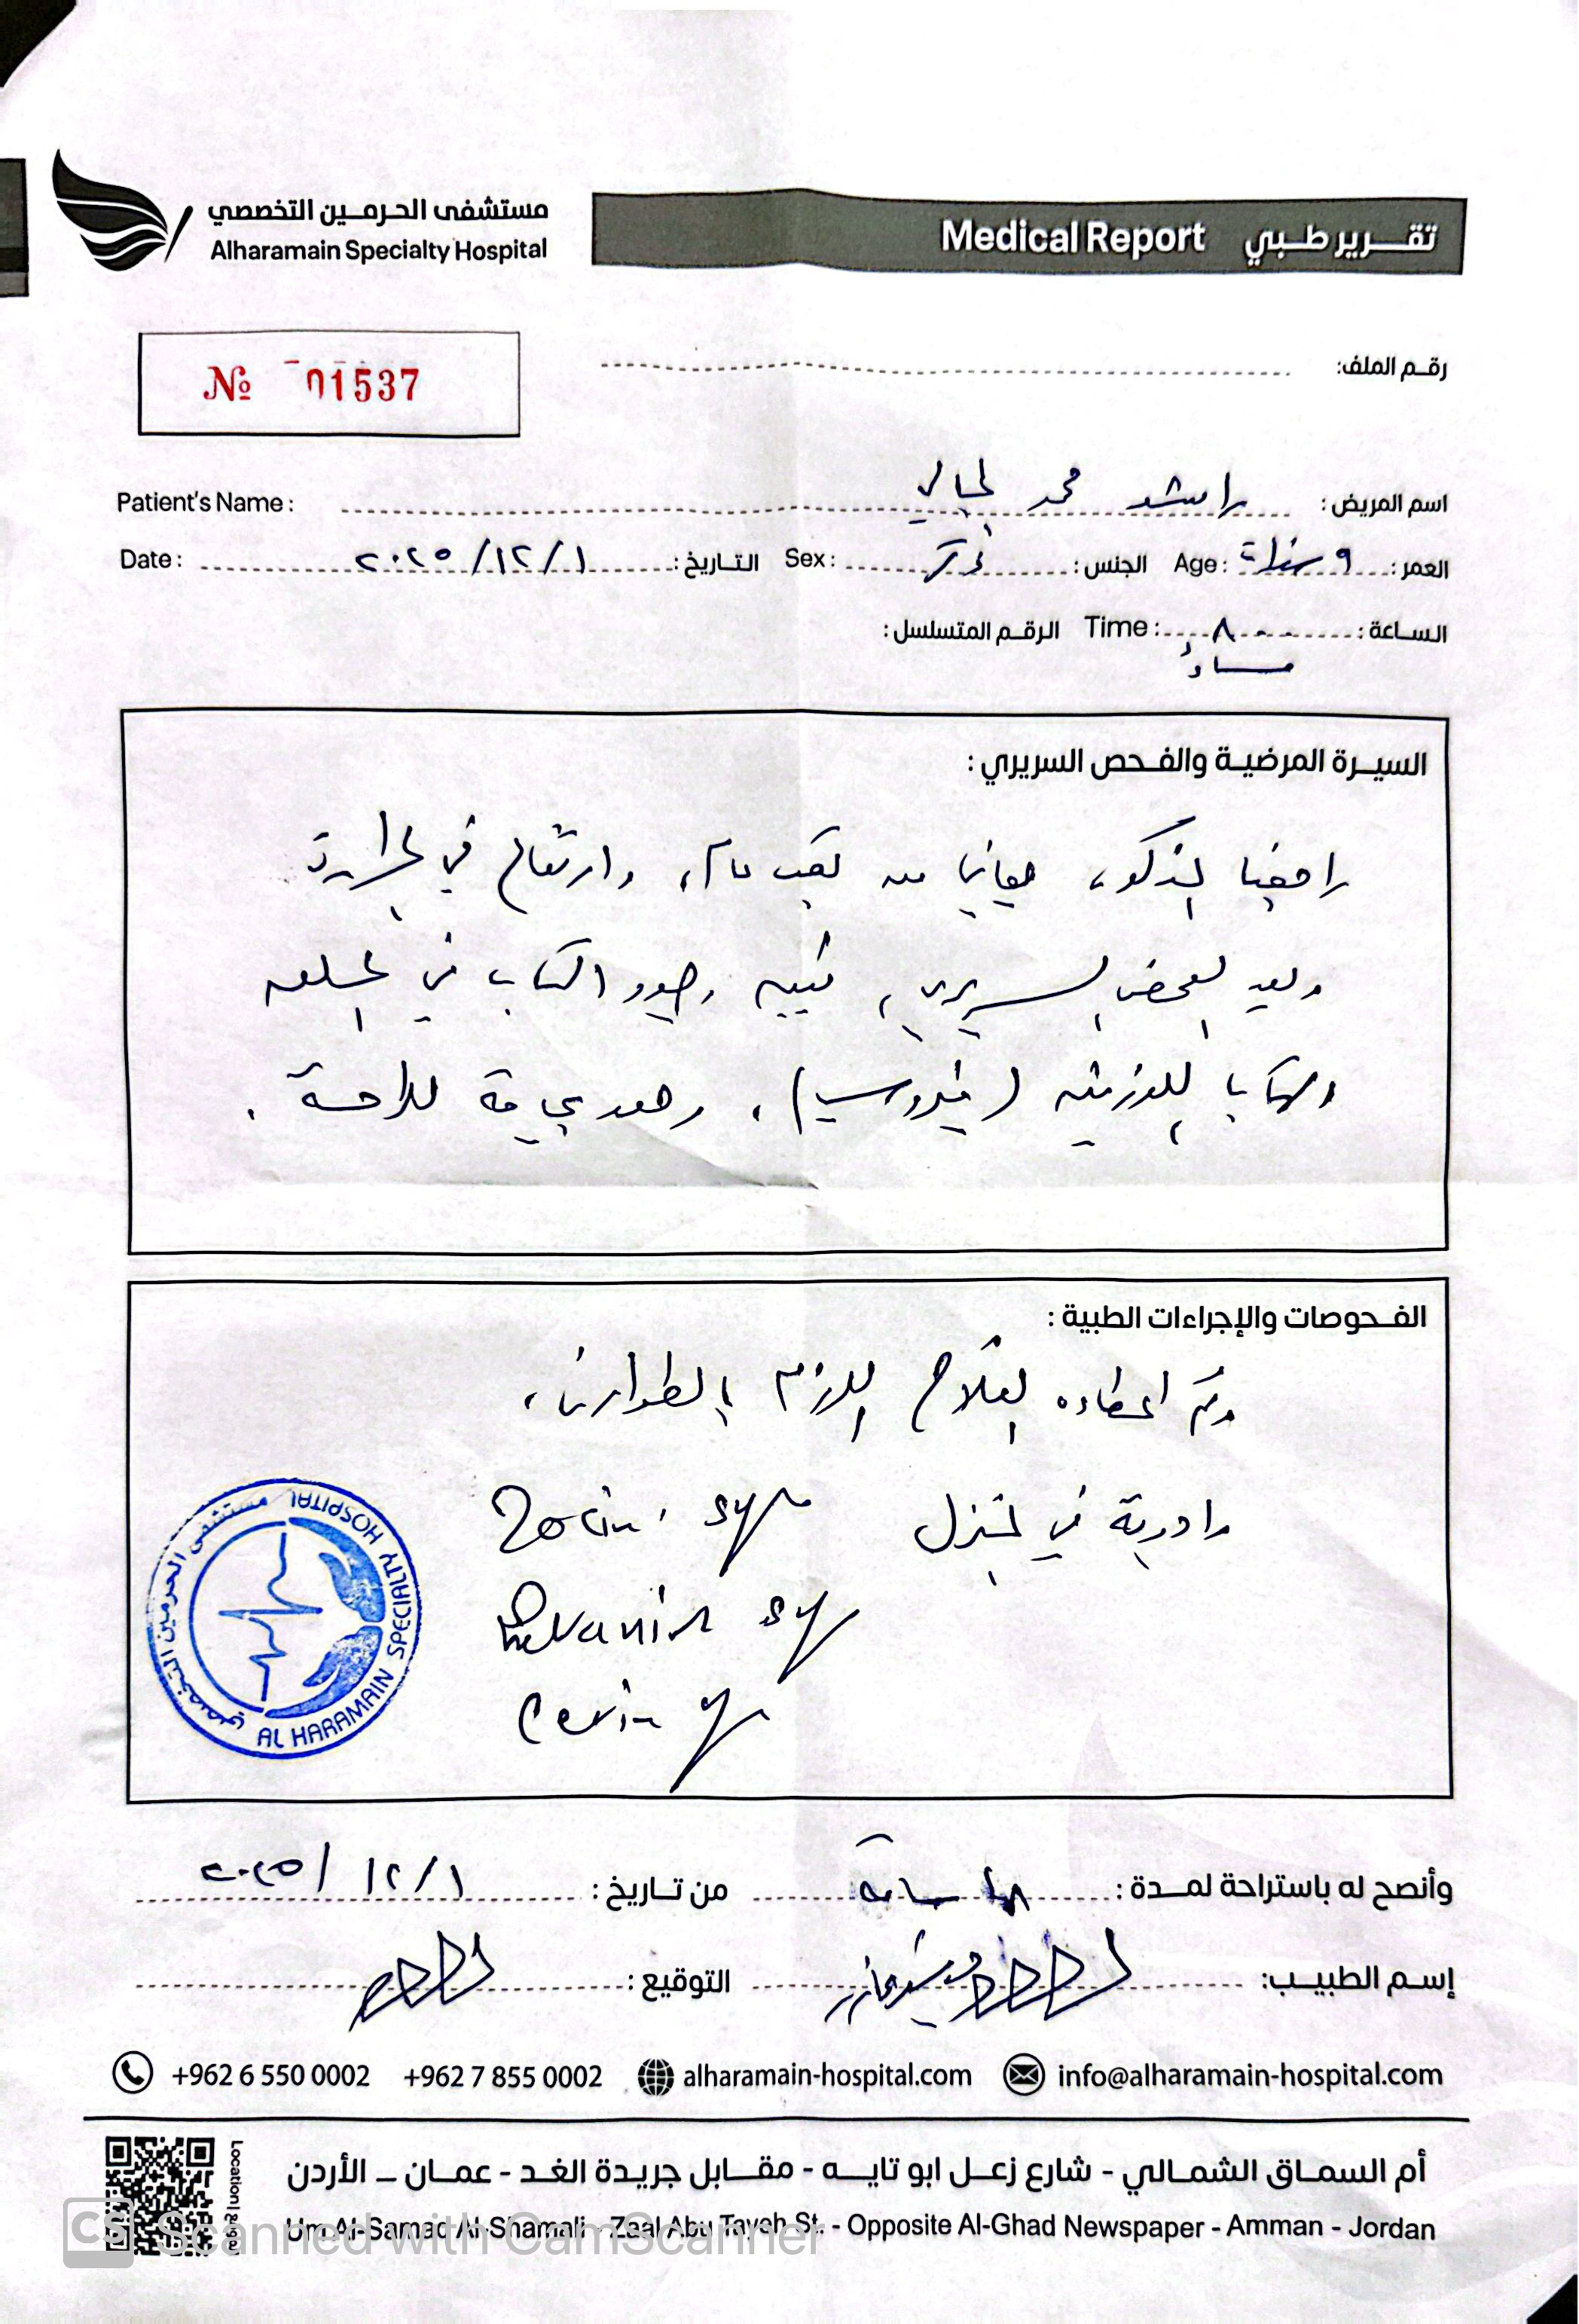 مستشفى الحرمين التخصصي
Alharamain Specialty Hospital
Medical Report تقرير طبي
№ 01537
رقم الملف:
Patient's Name: اسم المريض: راشد محمد
العمر: ٩ سنوات Age: الجنس: ذكر Sex: التاريخ: ٢٠٢٥/١٢/١ Date:
الساعة: ٨٠٠ Time: الرقم المتسلسل:
مساءً
السيرة المرضية والفحص السريري:
راجعنا المذكور، يعاني من تعب عام، وارتفاع في الحرارة
وبعد الفحص السريري، تبين وجود التهاب في الحلق
والتهاب اللوزتين (فيروسي)، وهو بحاجة للراحة.
الفحوصات والإجراءات الطبية:
وتم اعطاءه العلاج اللازم بالطوارئ،
وادوية في المنزل
مستشفى الحرمين التخصصي
AL HARAMAIN SPECIALTY HOSPITAL
وأنصح له باستراحة لمدة: ساعة من تاريخ: ٢٠٢٥/١٢/١
إسم الطبيب: التوقيع:
+962 6 550 0002 +962 7 855 0002 alharamain-hospital.com info@alharamain-hospital.com
أم السماق الشمالي - شارع زعل ابو تايه - مقابل جريدة الغد - عمان - الأردن
Um Al-Samaq Al-Shamali - Zaal Abu Tayeh St. - Opposite Al-Ghad Newspaper - Amman - Jordan
Location
CS Scanned with CamScanner